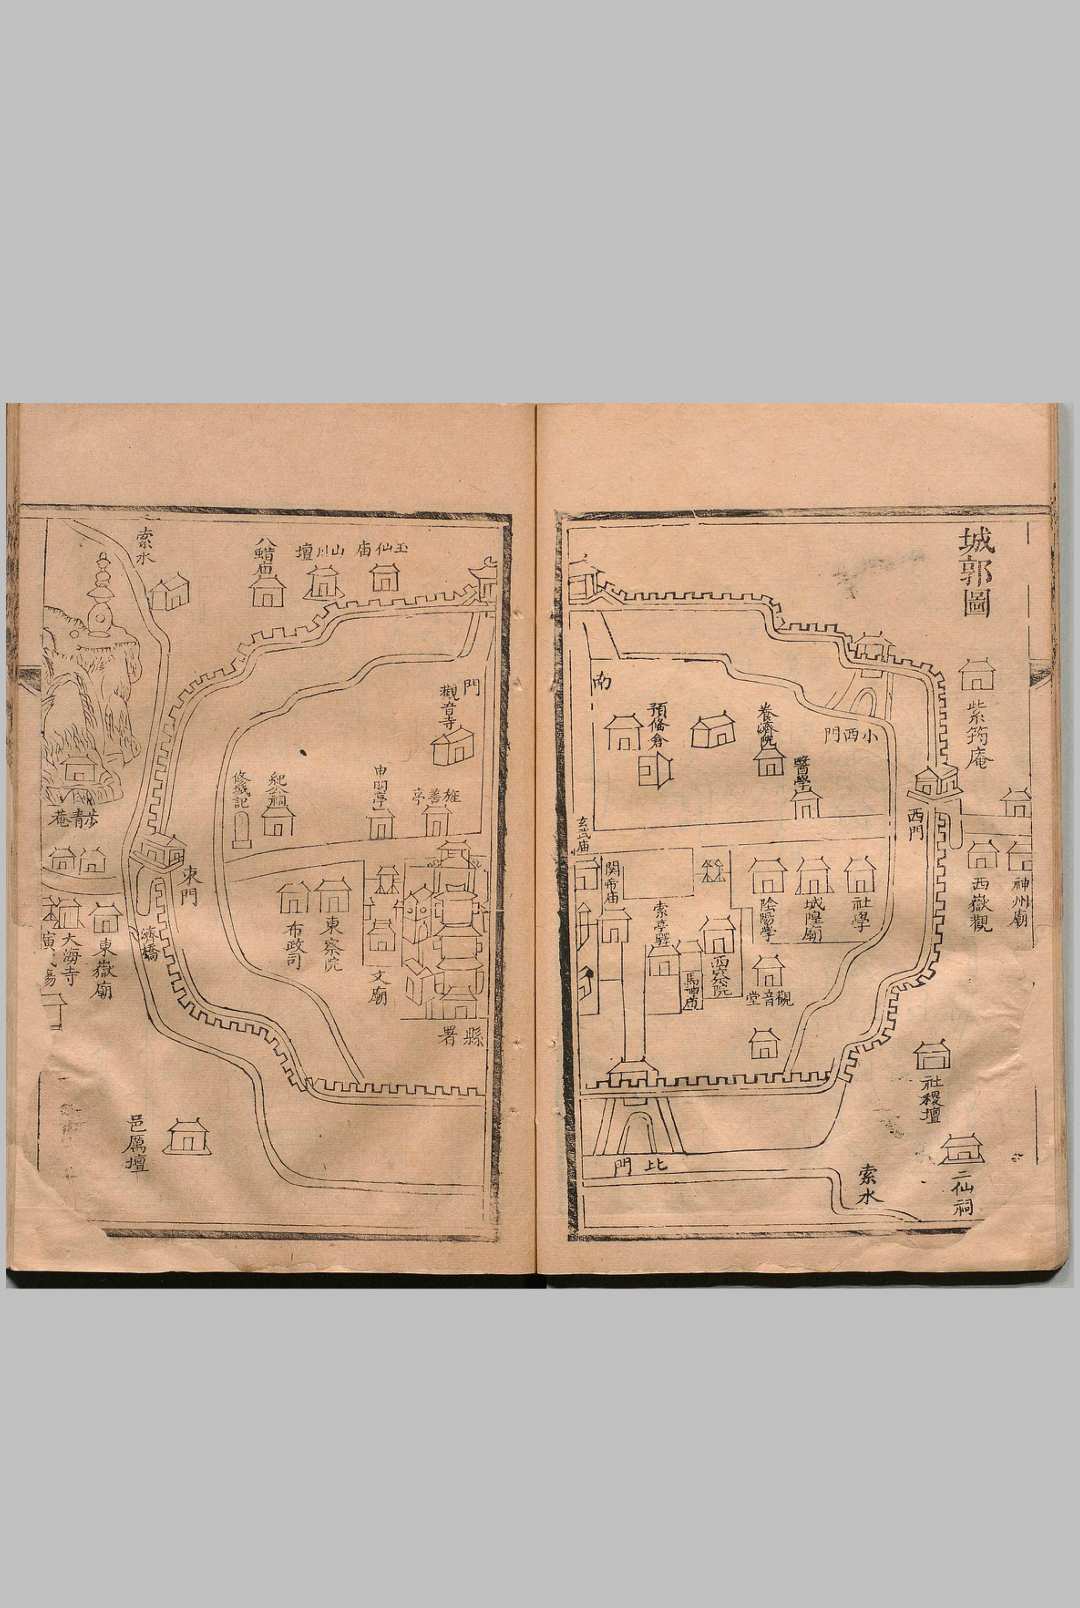 城郭圖
紫筠庵
神州廟
西嶽觀
西門
小西門
社稷壇
二仙祠
索水
養濟院
醫學
社學
城隍廟
陰陽學
觀音堂
西察院
預俻倉
索亭驛
馬神庙
関帝庙
玄武庙
北門
南
門
觀音寺
玉仙庙
山川壇
八蜡庙
索水
旌善亭
申明亭
紀公祠
縣署
文廟
東察院
布政司
東門
濟橋
東嶽廟
大海寺
邑厲壇